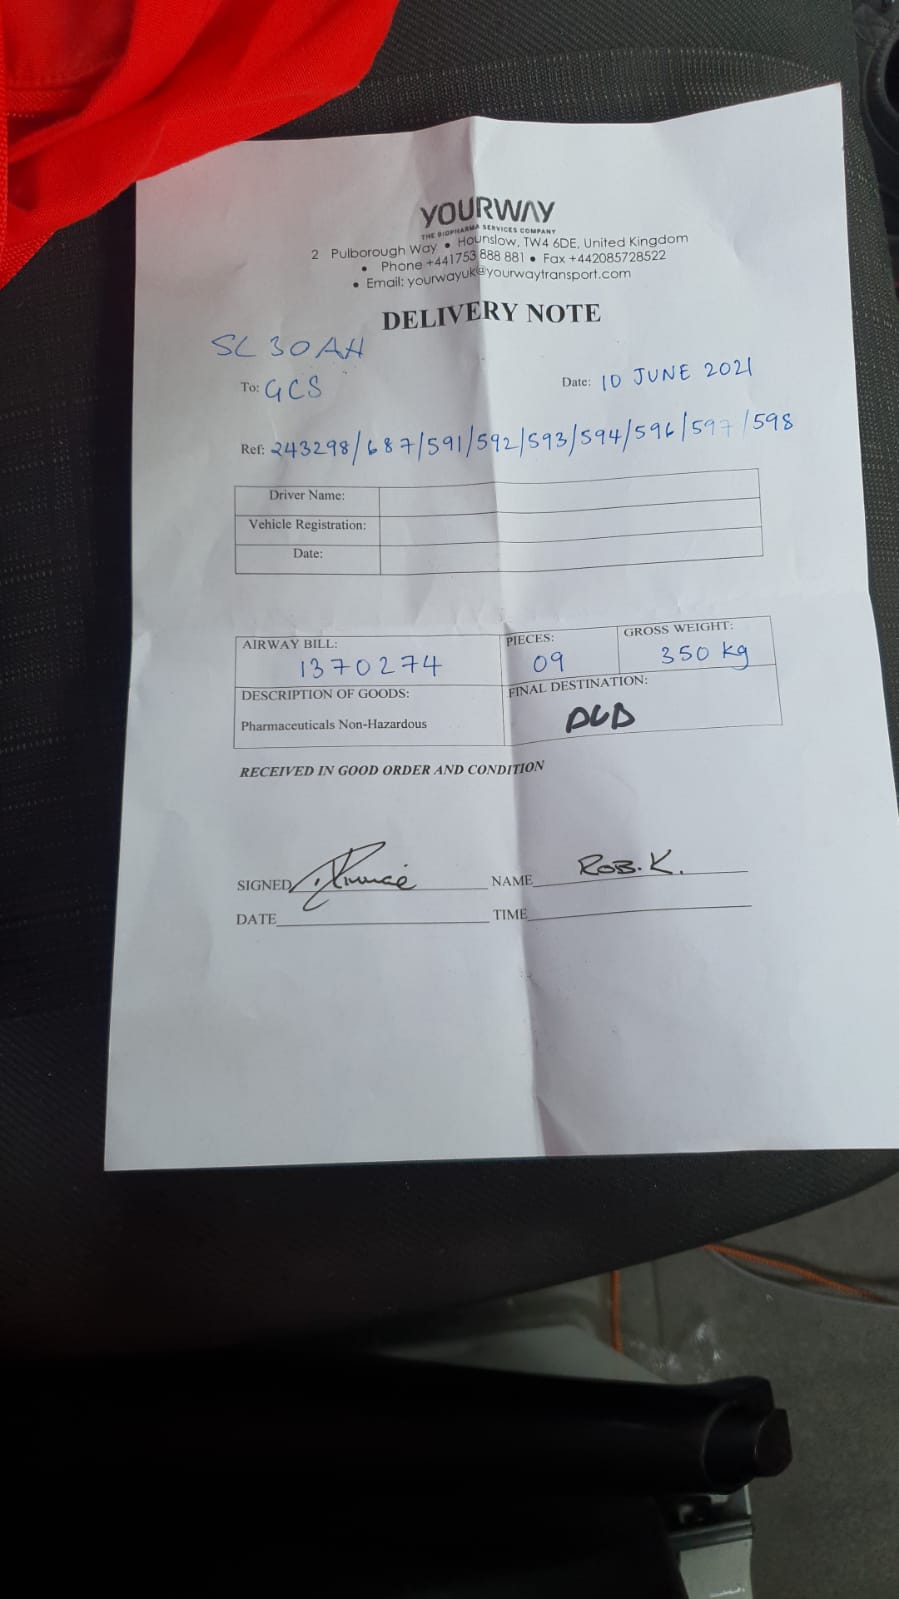 YOURWAY
THE BIOPHARMA SERVICES COMPANY
2 Pulborough Way • Hounslow, TW4 6DE, United Kingdom
• Phone +441753 888 881 • Fax +442085728522
• Email: yourwayuk@yourwaytransport.com
DELIVERY NOTE
SL 30AH
To: GCS Date: 10 JUNE 2021
Ref: 243298/687/591/592/593/594/596/597/598
Driver Name:
Vehicle Registration:
Date:
AIRWAY BILL: PIECES: GROSS WEIGHT:
1370274 09 350 kg
DESCRIPTION OF GOODS: FINAL DESTINATION:
Pharmaceuticals Non-Hazardous
RECEIVED IN GOOD ORDER AND CONDITION
SIGNED NAME ROB.K.
DATE TIME